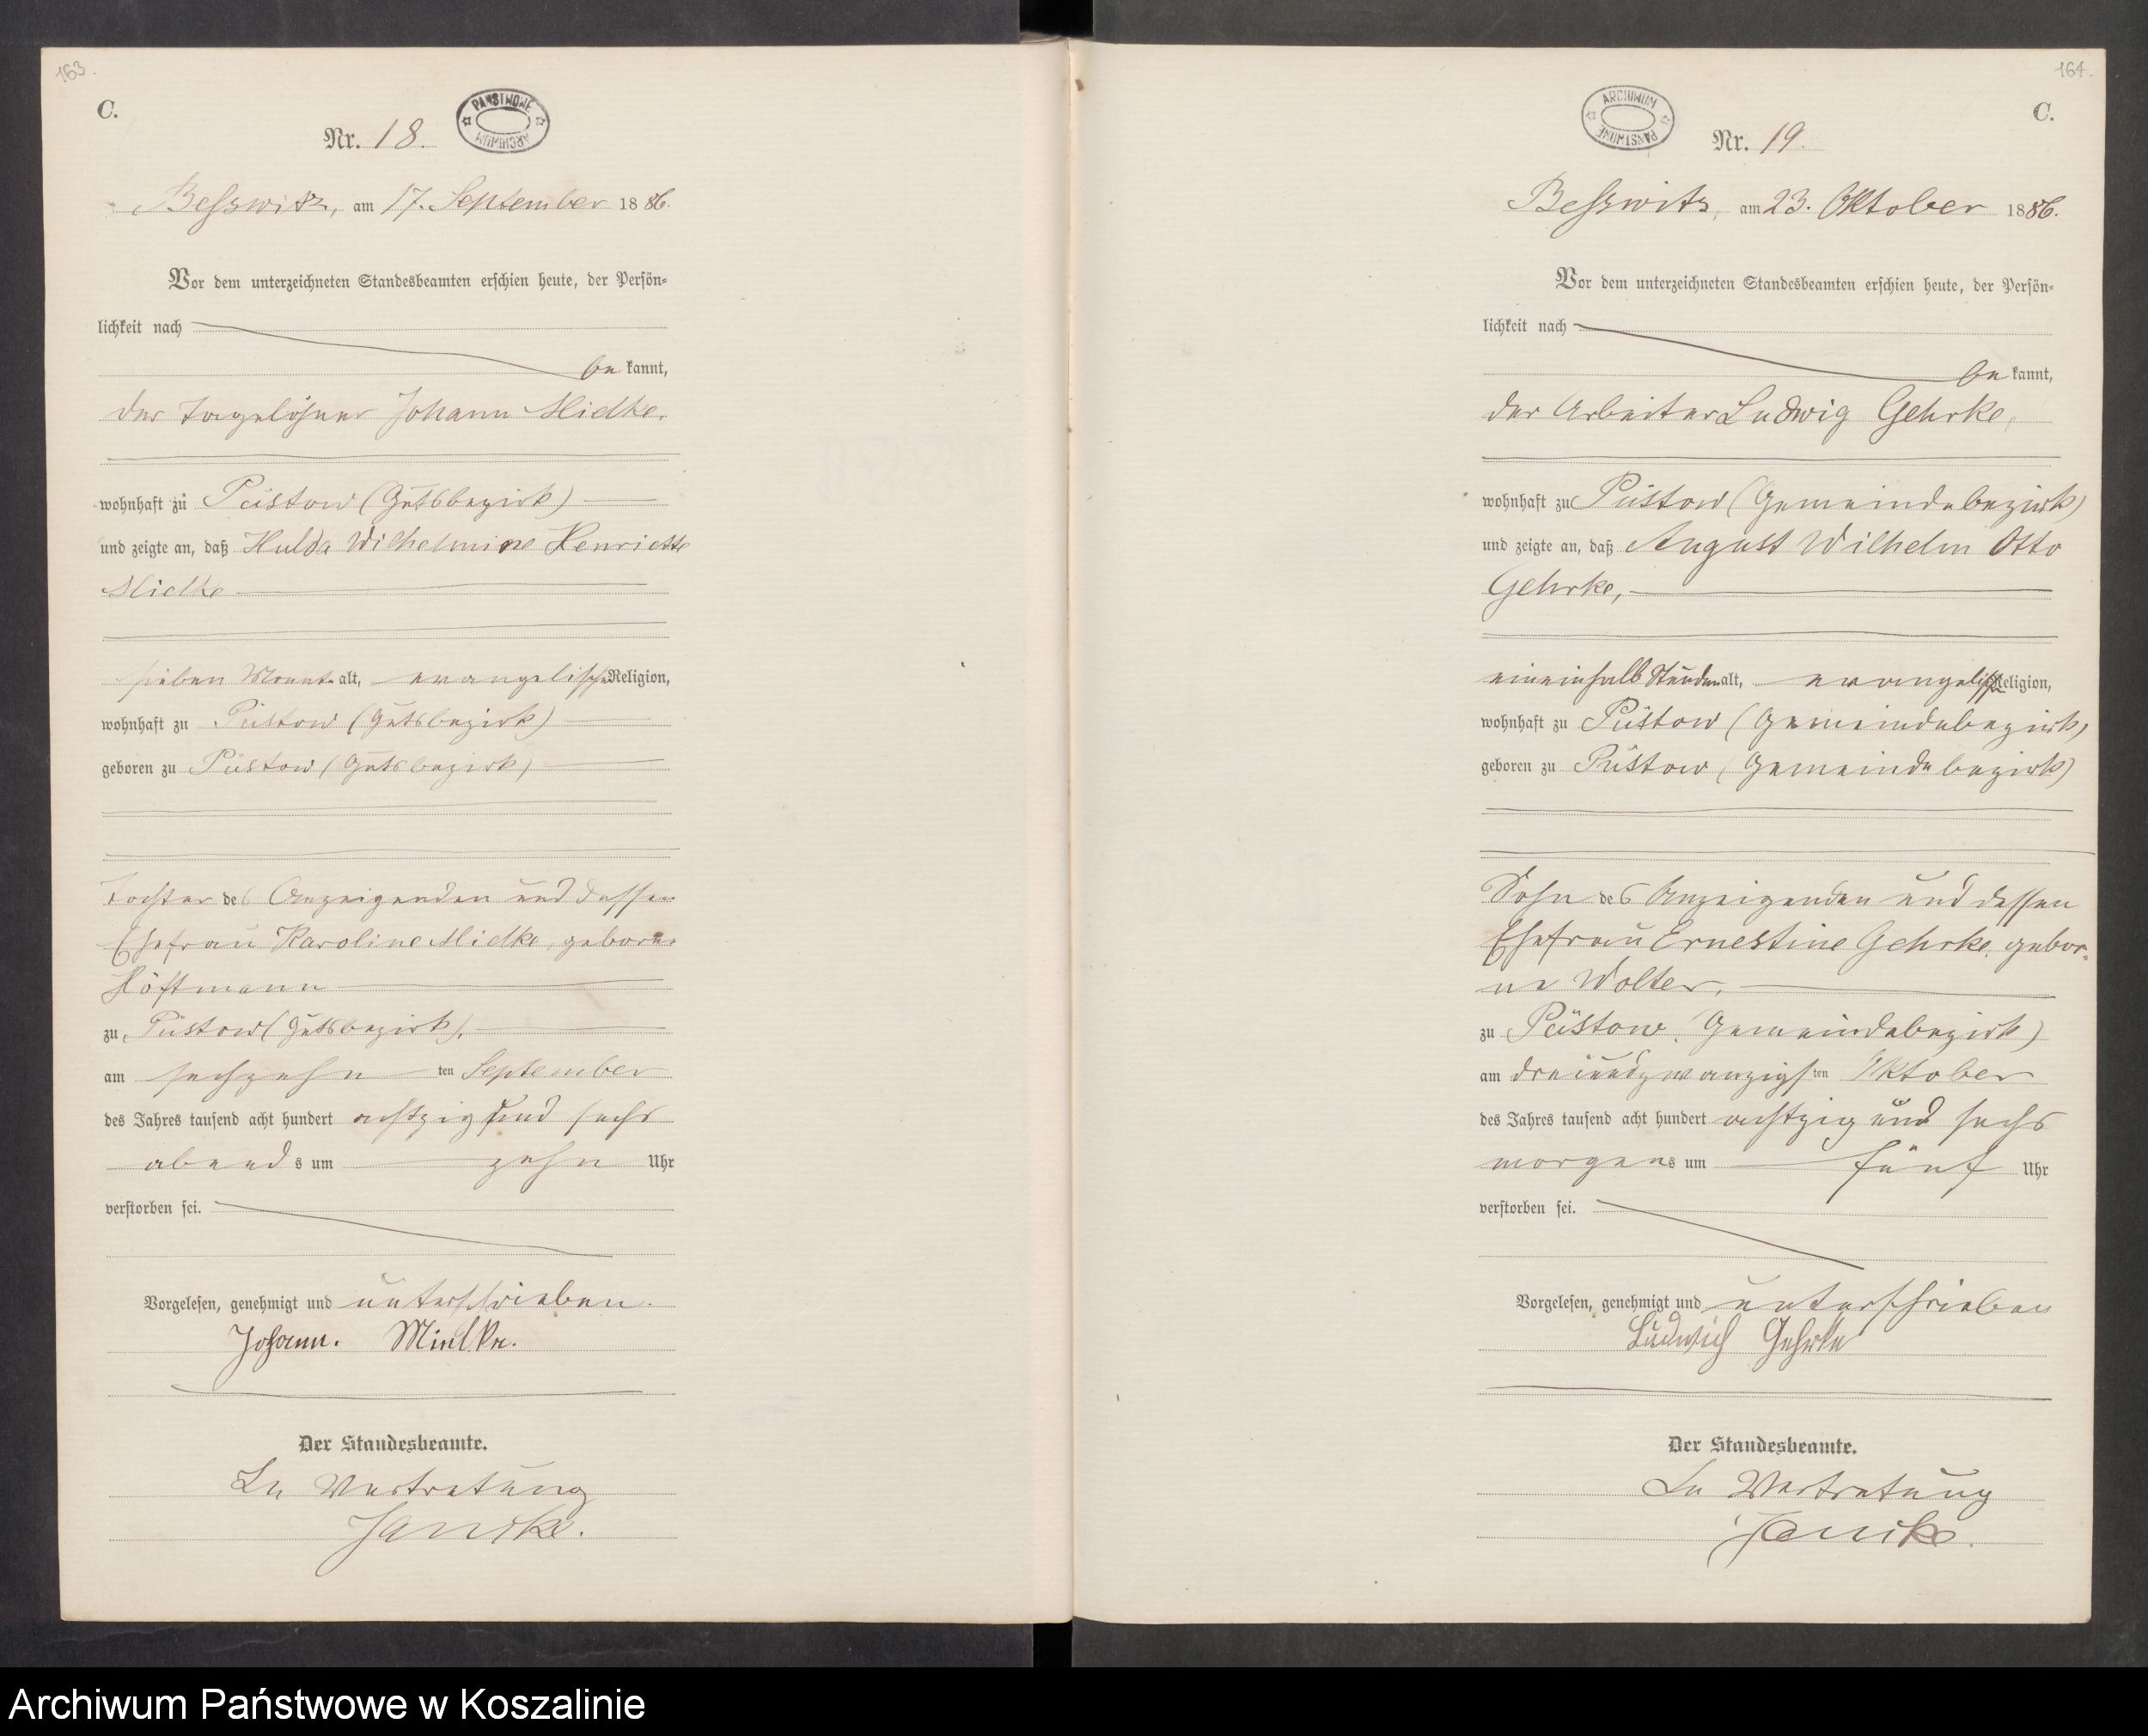 163.
C.
PAŃSTWOWE ARCHIWUM
Nr. 18.
Beßwitz, am 17. September 1886.
Vor dem unterzeichneten Standesbeamten erschien heute, der Persön-
lichkeit nach
be kannt,
der Tagelöhner Johann Mielke,
wohnhaft zu Püstow (Gutsbezirk)
und zeigte an, daß Hulda Wilhelmine Henriette
Mielke
sieben Monate alt, evangelischer Religion,
wohnhaft zu Püstow (Gutsbezirk)
geboren zu Püstow (Gutsbezirk)
Tochter des Anzeigenden und dessen
Ehefrau Karoline Mielke, geborne
Höftmann
zu Püstow (Gutsbezirk),
am sechzehn ten September
des Jahres tausend acht hundert achtzig und sechs
abends um zehn Uhr
verstorben sei.
Vorgelesen, genehmigt und unterschrieben.
Johann. Mielke.
Der Standesbeamte.
In Vertretung
164.
C.
ARCHIWUM PAŃSTWOWE
Nr. 19.
Beßwitz, am 23. Oktober 1886.
Vor dem unterzeichneten Standesbeamten erschien heute, der Persön-
lichkeit nach
be kannt,
der Arbeiter Ludwig Gehrke,
wohnhaft zu Püstow (Gemeindebezirk)
und zeigte an, daß August Wilhelm Otto
Gehrke,
eineinhalb Stunden alt, evangelischer Religion,
wohnhaft zu Püstow (Gemeindebezirk)
geboren zu Püstow (Gemeindebezirk)
Sohn des Anzeigenden und dessen
Ehefrau Ernestine Gehrke, gebor-
ne Wolter,
zu Püstow (Gemeindebezirk)
am dreiundzwanzigsten Oktober
des Jahres tausend acht hundert achtzig und sechs
morgens um fünf Uhr
verstorben sei.
Vorgelesen, genehmigt und unterschrieben
Ludwich Gehrke
Der Standesbeamte.
In Vertretung
Archiwum Państwowe w Koszalinie